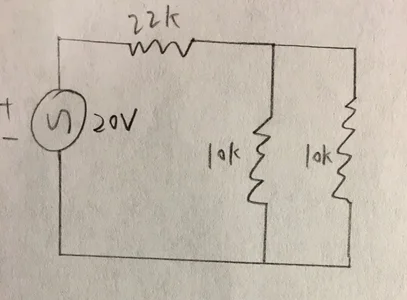 22k
+
-
20V
10k
10k